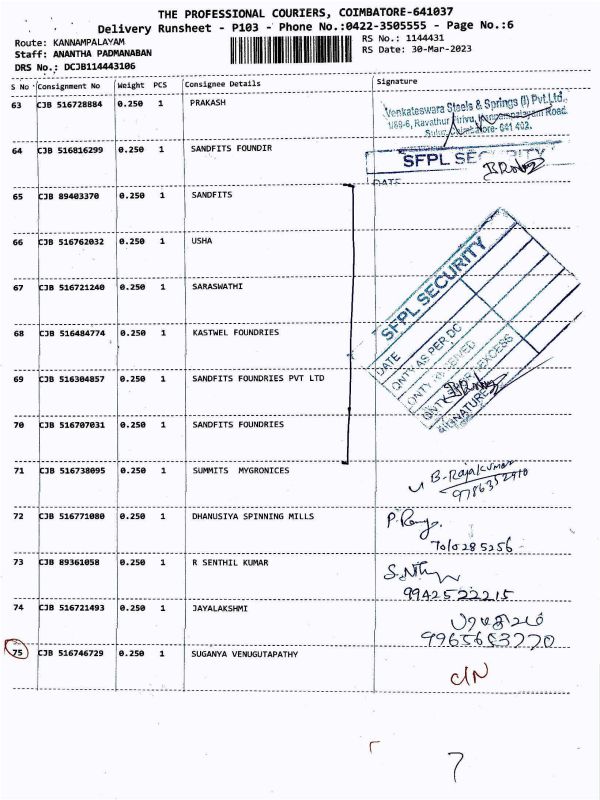 THE PROFESSIONAL COURIERS, COIMBATORE-641037
Delivery Runsheet - P103 - Phone No.:0422-3505555 - Page No.:6
Route: KANNAMPALAYAM
RS No.: 1144431
Staff: ANANTHA PADMANABAN
RS Date: 30-Mar-2023
DRS No.: DCJB114443106
S No Consignment No Weight PCS Consignee Details Signature
63 CJB 516728884 0.250 1 PRAKASH
Venkateswara Steels & Springs (I) Pvt.Ltd.
1/89-6, Ravathur Pirivu, Kannampalayam Road
Sulur, Coimbatore- 641 402.
64 CJB 516816299 0.250 1 SANDFITS FOUNDIR
SFPL SECURITY
DATE
65 CJB 89403370 0.250 1 SANDFITS
66 CJB 516762032 0.250 1 USHA
67 CJB 516721240 0.250 1 SARASWATHI
68 CJB 516484774 0.250 1 KASTWEL FOUNDRIES
69 CJB 516304857 0.250 1 SANDFITS FOUNDRIES PVT LTD
70 CJB 516707031 0.250 1 SANDFITS FOUNDRIES
SFPL SECURITY
DATE
QNTY AS PER DC
QNTY RECEIVED
QNTY EXCESS
SIGNATURE
71 CJB 516738095 0.250 1 SUMMITS MYGRONICES
B. Rajakumar
9786352910
72 CJB 516771080 0.250 1 DHANUSIYA SPINNING MILLS
7010285256
73 CJB 89361058 0.250 1 R SENTHIL KUMAR
9942522215
74 CJB 516721493 0.250 1 JAYALAKSHMI
9965653770
75 CJB 516746729 0.250 1 SUGANYA VENUGUTAPATHY
C/N
7